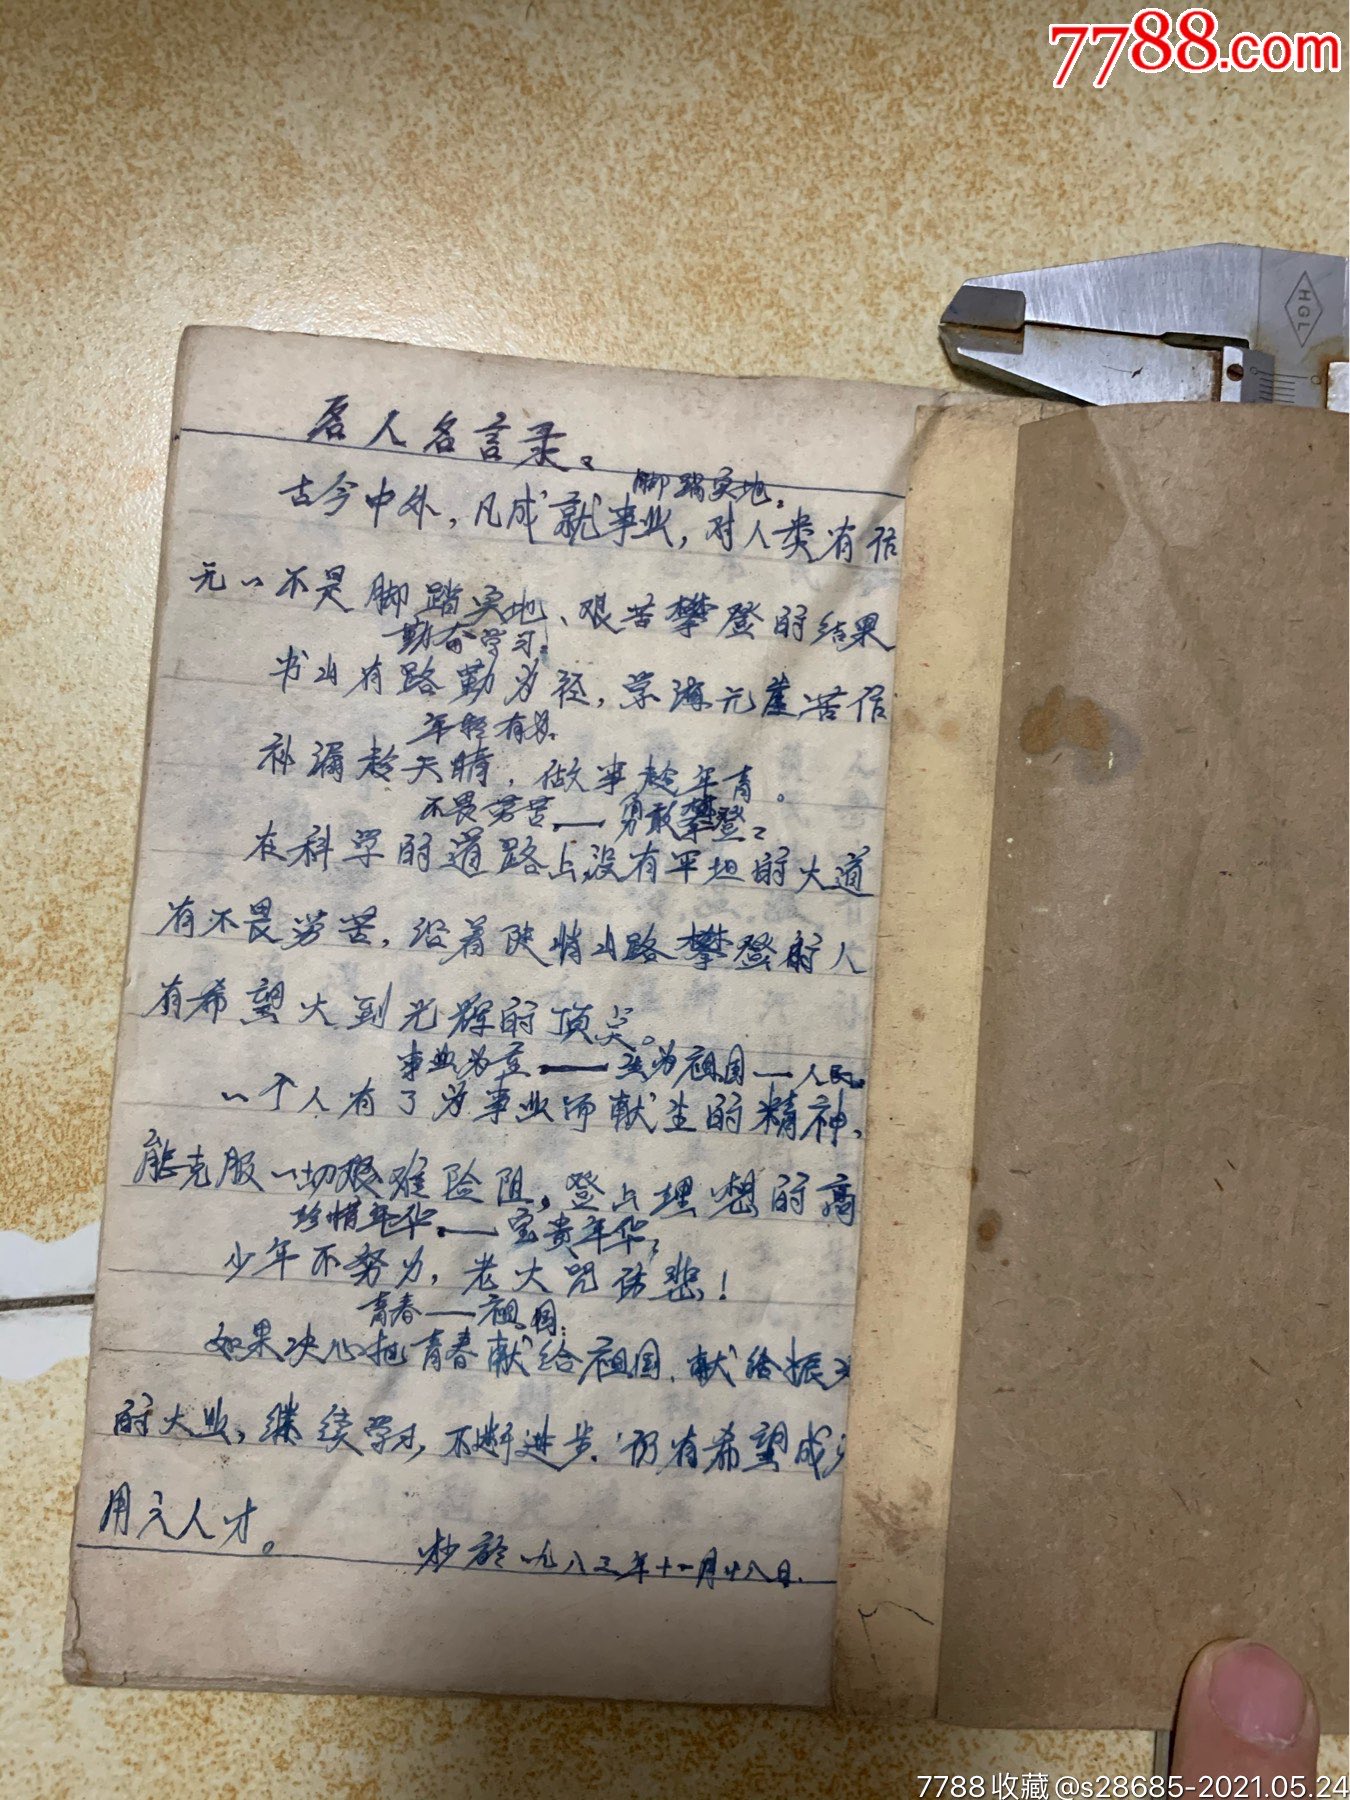 7788.com
HGL
名人名言录。
脚踏实地。
古今中外，凡成就事业，对人类有
无一不是脚踏实地、艰苦攀登的结果
勤奋学习。
书山有路勤为径，学海无崖苦作
年轻有为。
补漏趁天晴，做事趁年青。
不畏劳苦。——勇敢攀登。
在科学的道路上没有平坦的大道
有不畏劳苦，沿着陡峭山路攀登的人
有希望 到光辉的顶尖。
事业为重。——为祖国—人民。
一个人有了为事业而献生的精神，
能克服一切艰难险阻，登上理想的高
珍惜年华。——宝贵年华。
少年不努力，老大 伤悲！
青春——祖国：
如果决心把青春献给祖国、献给振
的大业，继续学习，不断进步、仍有希望成
用之人才。
抄於一九八三年十一月廿八日.
7788收藏@s28685-2021.05.24